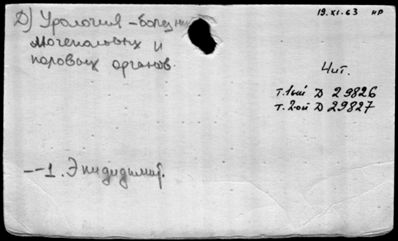 19.XI.63 нр
Д) Урология - болезни
мочеполовых и
половых органов.
Чит.
т. 1ый Д 29826
т. 2ой Д 29827
--1. Эпидидимит.